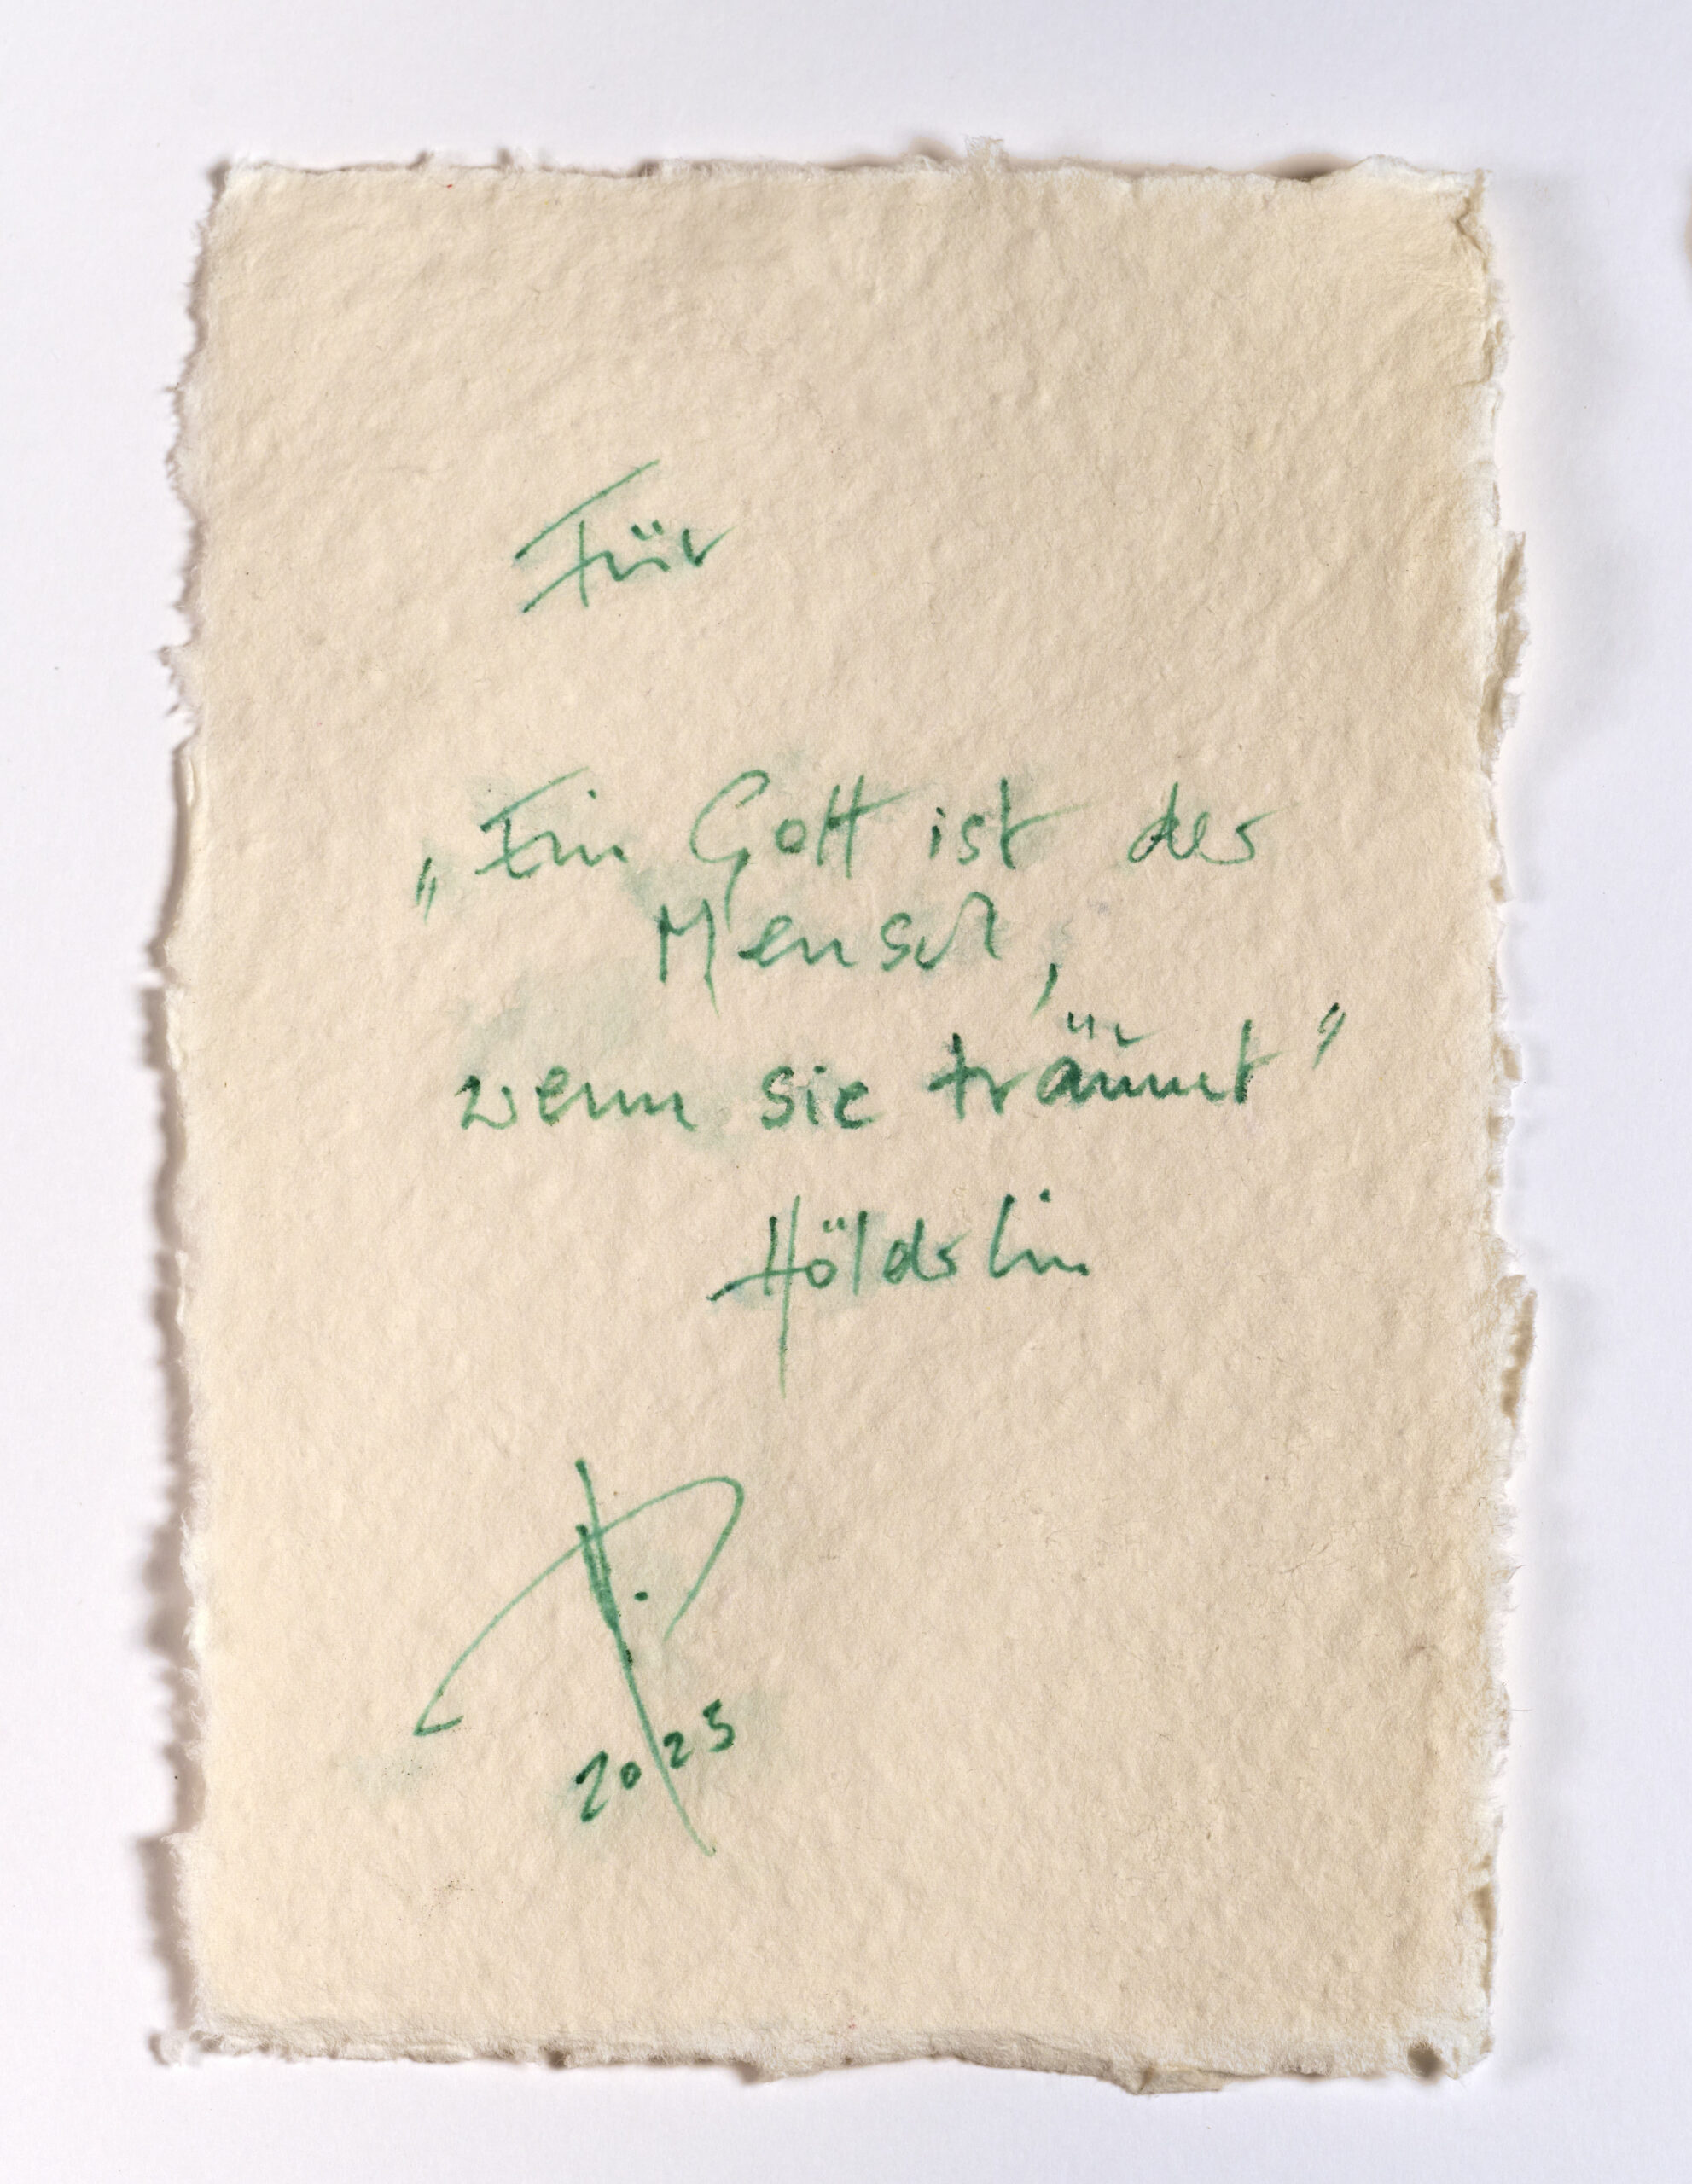 Für
„Ein Gott ist der
Mensch,
wenn sie träumt"
Hölderlin
2025